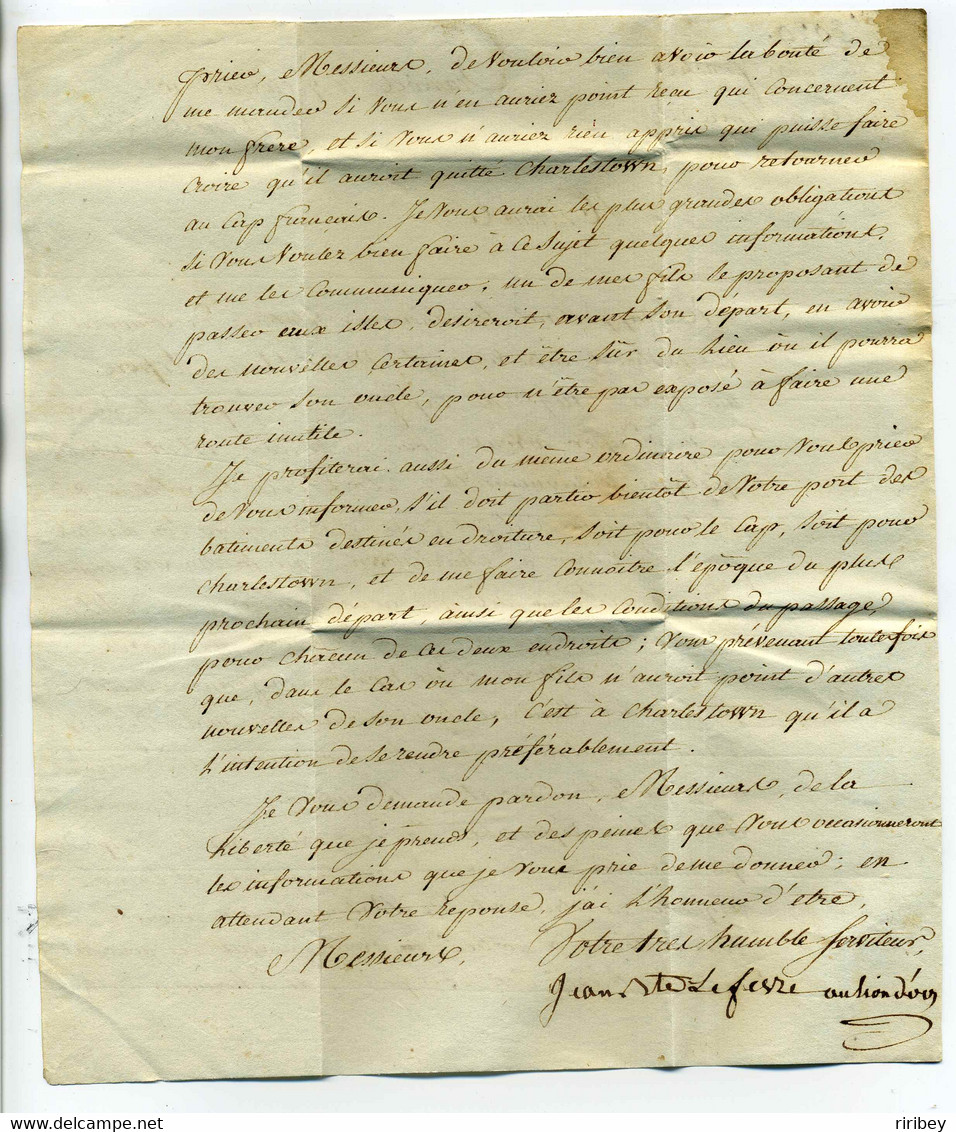 prier, Messieurs, de vouloir bien avoir la bonté de
me mander si vous n'en auriez point reçu qui concernent
mon frère, et si vous n'auriez rien appris qui puisse faire
croire qu'il auroit quitté Charlestown, pour retourner
au Cap français. Je vous aurai les plus grandes obligations
si vous voulez bien faire à ce sujet quelques informations,
et me les communiquer; un de mes fils se proposant de
passer aux isles, désireroit, avant son départ, en avoir
des nouvelles certaines, et être sûr du lieu où il pourra
trouver son oncle, pour n'être pas exposé à faire une
route inutile.
Je profiterai aussi du même ordinaire pour vous prier
de vous informer, s'il doit partir bientôt de votre port des
batiments destinés en droiture, soit pour le Cap, soit pour
Charlestown, et de me faire connoître l'époque du plus
prochain départ, ainsi que les conditions du passage,
pour chacun de ces deux endroits; vous prévenant toutes fois
que, dans le cas où mon fils n'auroit point d'autres
nouvelles de son oncle, c'est à Charlestown qu'il a
l'intention de se rendre préférablement.
Je vous demande pardon, Messieurs, de la
liberté que je prends, et des peines que vous occasionneront
les informations que je vous prie de me donner; en
attendant votre reponse, j'ai l'honneur d'etre,
Messieurs, Votre tres humble serviteur,
Jean Bte Lefevre au lion d'or
riribey